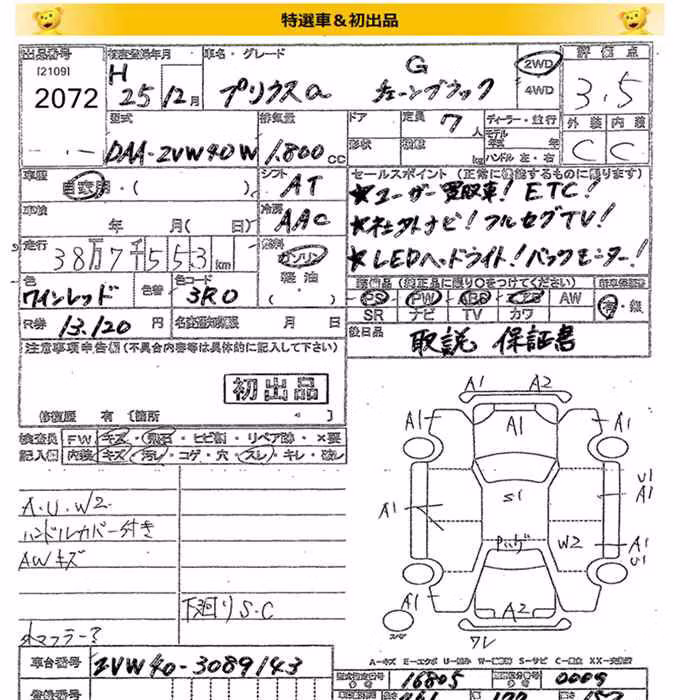 特選車&初出品
出品番号
[2109]
2072
初度登録年月
H 25年 12月
車名・グレード
G
プリウスα チューンブラック
2WD
4WD
評価点
3.5
外装 内装
C C
型式
DAA-ZVW40W
排気量
1,800 CC
ドア
定員 7人
ディーラー・並行
モデル
年式 年
形状
積載 kg
ハンドル 左・右
車歴
自家用・( )
シフト
AT
セールスポイント (正常に機能するものに限ります)
★ユーザー買取車! ETC!
★社外ナビ! フルセグTV!
★LEDヘッドライト! バックモニター!
車検
年 月( 日)
冷房
AAC
走行
38万7千553km
燃料
ガソリン
軽油
( ・ )
色
ワインレッド
色替
色コード
3R0
装備品 (純正品に限り○をつけてください)
PS PW ABS エアB AW
SR ナビ TV カワ
有・無
R券 13,120 円
名変通知期限 月 日
後日品
取説 保証書
注意事項申告欄(不具合内容等は具体的に記入して下さい)
初出品
修復歴 有 [箇所
検査員 FW キズ・飛石・ヒビ割・リペア跡・×要
記入欄 内装 キズ・汚レ・コゲ・穴・スレ・キレ・破レ
A.U.W2
ハンドルカバー付き
AWキズ
下廻りS.C
車台番号 ZVW40-3089143
A1 A2
A1 A1 A1
U1
A1 S1 A1
W2 A1
U1
A1 A2 A1
ワレ
スペア
A-キズ E-エクボ
型式指定番号 16805
類別区分番号 0009